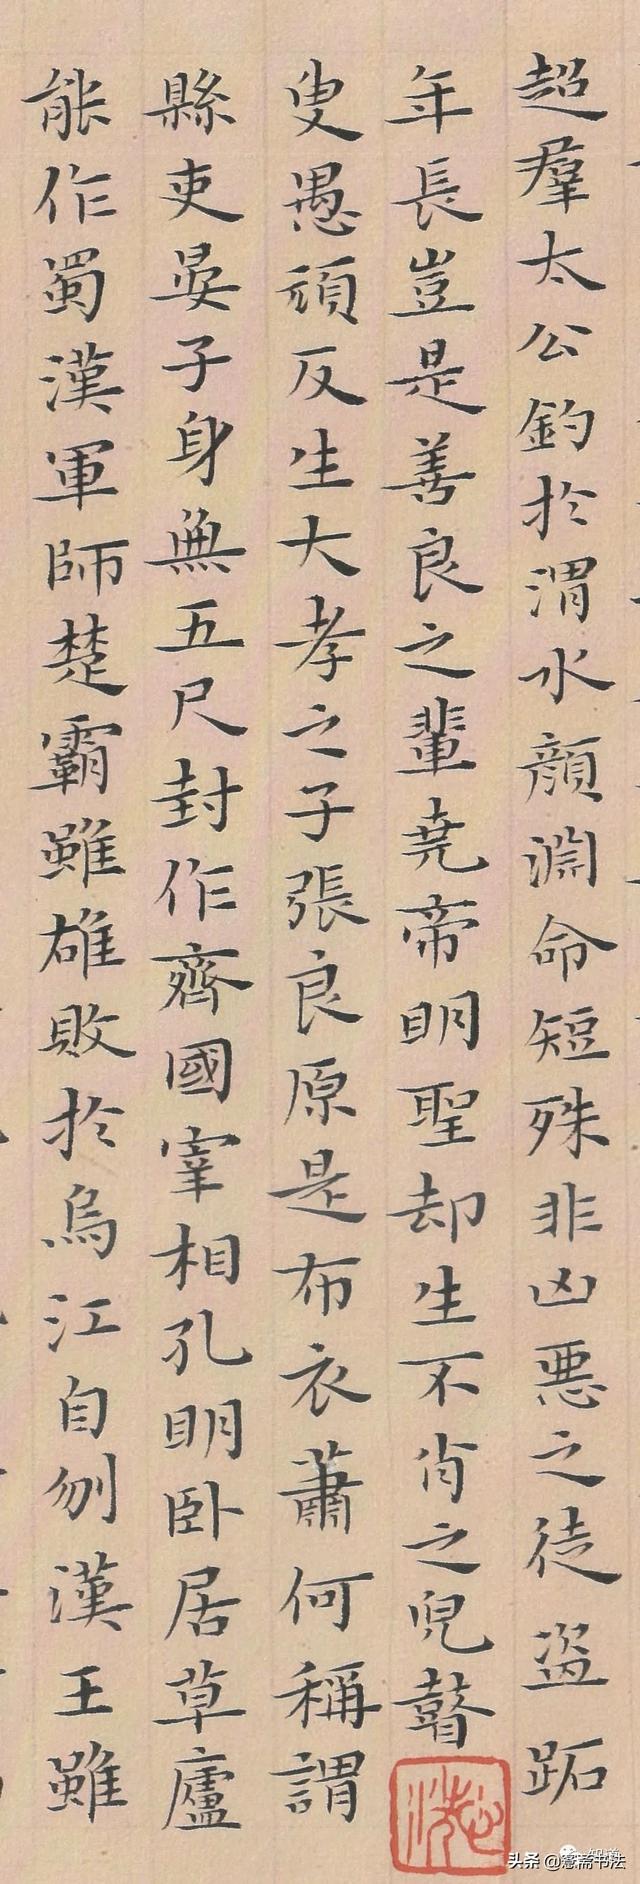 超羣太公釣於渭水顏淵命短殊非凶惡之徒盜跖
年長豈是善良之輩堯帝明聖却生不肖之兒瞽
叟愚頑反生大孝之子張良原是布衣蕭何稱謂
縣吏晏子身無五尺封作齊國宰相孔明卧居草廬
能作蜀漢軍師楚霸雖雄敗於烏江自刎漢王雖
头条@憲斋书法